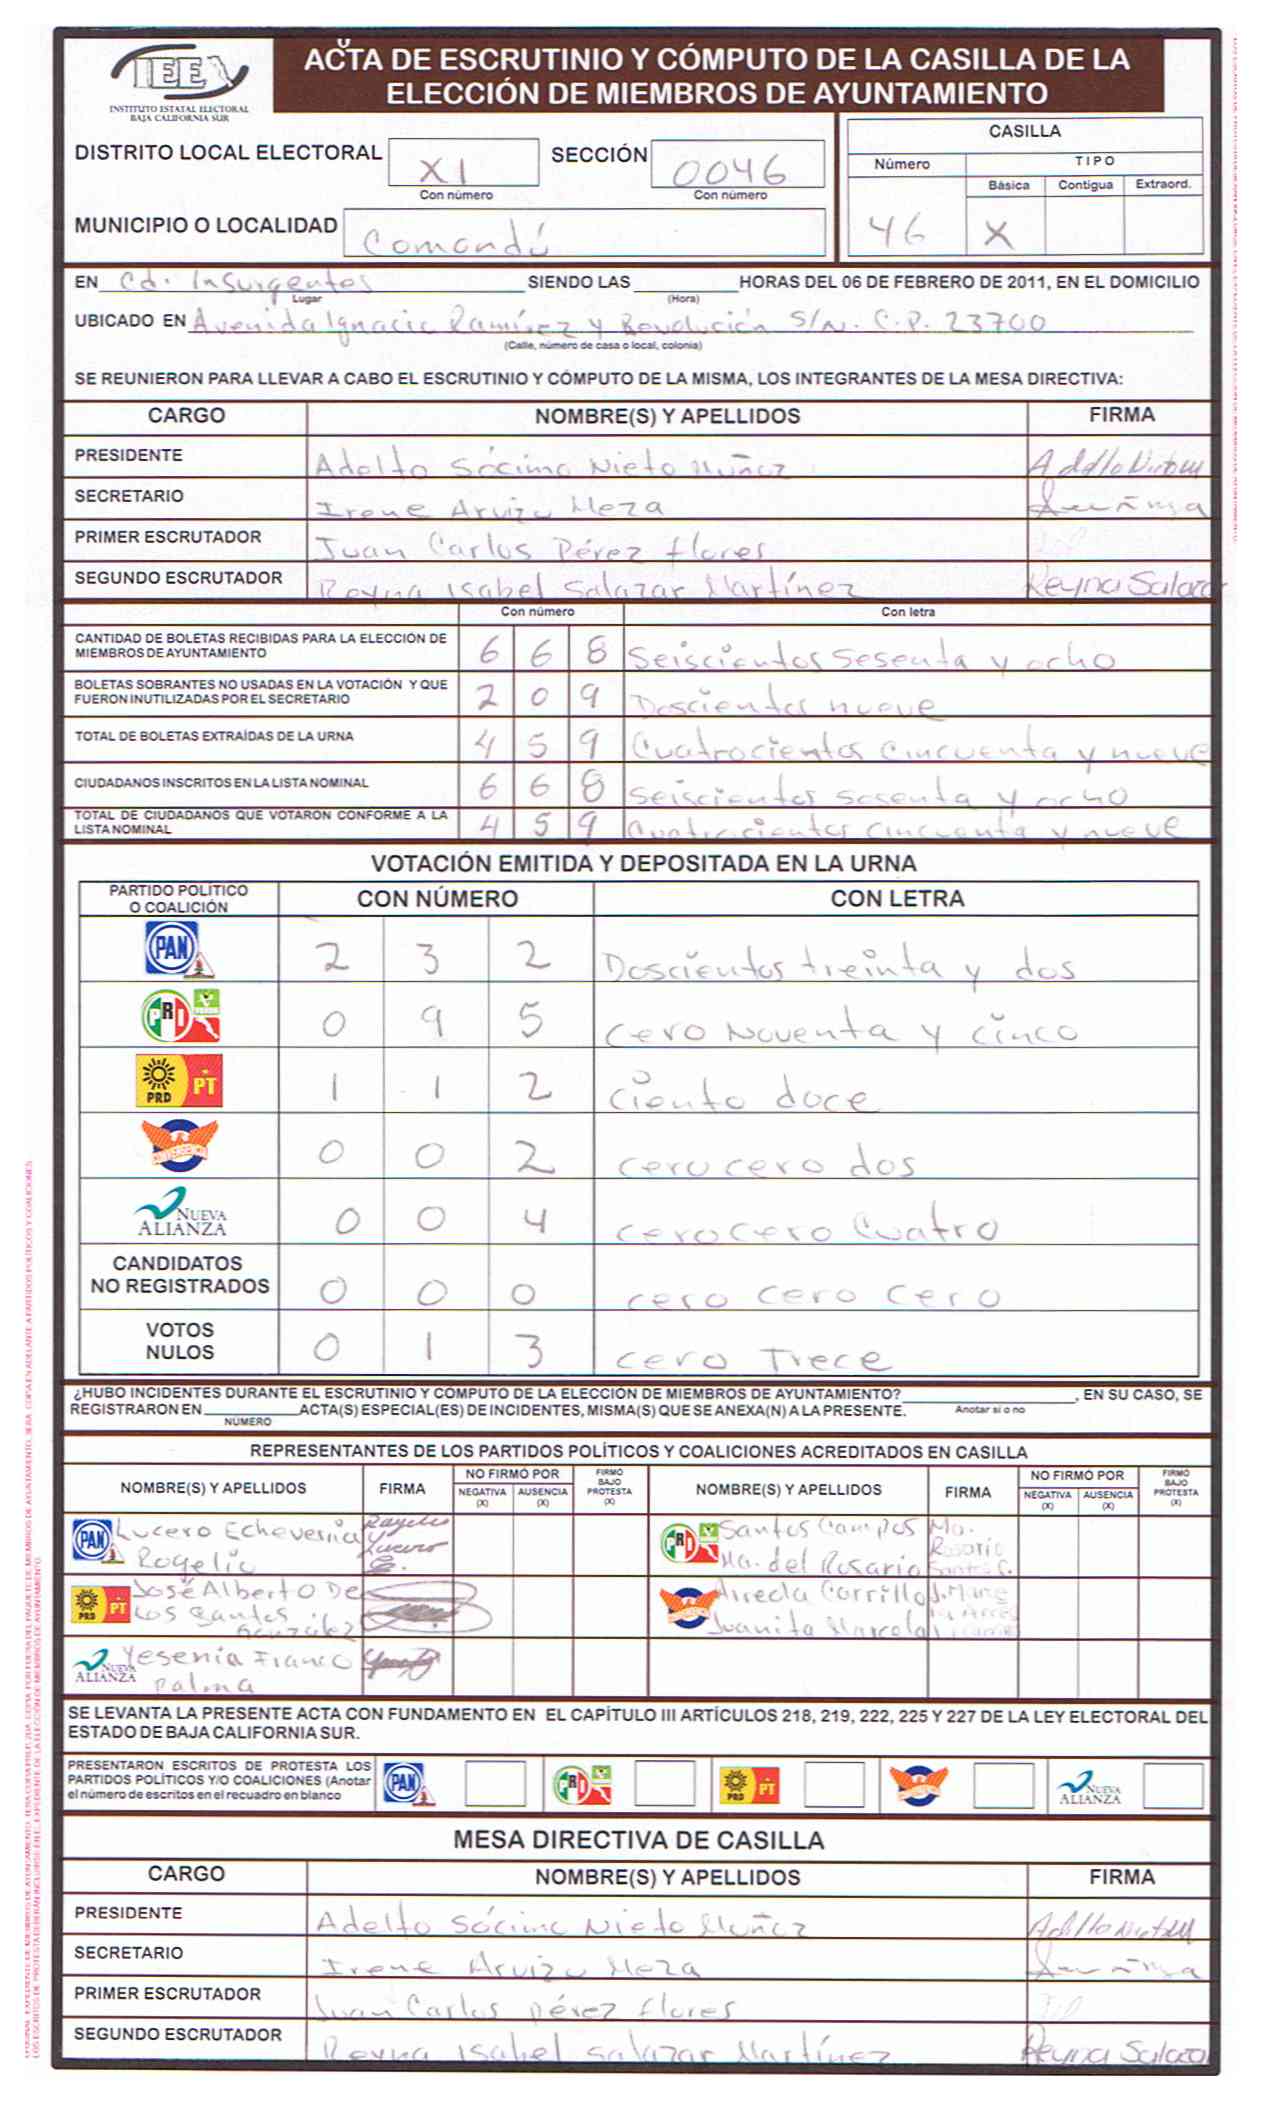 IEEX
INSTITUTO ESTATAL ELECTORAL
BAJA CALIFORNIA SUR
ACTA DE ESCRUTINIO Y CÓMPUTO DE LA CASILLA DE LA
ELECCIÓN DE MIEMBROS DE AYUNTAMIENTO
DISTRITO LOCAL ELECTORAL XI SECCIÓN 0046
Con número Con número
MUNICIPIO O LOCALIDAD Comondú
CASILLA
Número TIPO
Básica Contigua Extraord.
46 X
EN Cd. Insurgentes SIENDO LAS HORAS DEL 06 DE FEBRERO DE 2011, EN EL DOMICILIO
Lugar (Hora)
UBICADO EN Avenida Ignacio Ramírez y Revolución S/N. C.P. 23700
(Calle, número de casa o local, colonia)
SE REUNIERON PARA LLEVAR A CABO EL ESCRUTINIO Y CÓMPUTO DE LA MISMA, LOS INTEGRANTES DE LA MESA DIRECTIVA:
CARGO NOMBRE(S) Y APELLIDOS FIRMA
PRESIDENTE Adolfo Sócimo Nieto Muñoz
SECRETARIO Irene Arvizu Meza
PRIMER ESCRUTADOR Juan Carlos Pérez flores
SEGUNDO ESCRUTADOR Reyna Isabel Salazar Martínez Reyna Salazar
Con número Con letra
CANTIDAD DE BOLETAS RECIBIDAS PARA LA ELECCIÓN DE
MIEMBROS DE AYUNTAMIENTO 6 6 8 Seiscientos sesenta y ocho
BOLETAS SOBRANTES NO USADAS EN LA VOTACIÓN Y QUE
FUERON INUTILIZADAS POR EL SECRETARIO 2 0 9 Doscientos nueve
TOTAL DE BOLETAS EXTRAÍDAS DE LA URNA 4 5 9 Cuatrocientos cincuenta y nueve
CIUDADANOS INSCRITOS EN LA LISTA NOMINAL 6 6 8 Seiscientos sesenta y ocho
TOTAL DE CIUDADANOS QUE VOTARON CONFORME A LA
LISTA NOMINAL 4 5 9 Cuatrocientos cincuenta y nueve
VOTACIÓN EMITIDA Y DEPOSITADA EN LA URNA
PARTIDO POLÍTICO
O COALICIÓN CON NÚMERO CON LETRA
PAN 2 3 2 Doscientos treinta y dos
PRI VERDE 0 9 5 cero Noventa y cinco
PRD PT 1 1 2 ciento doce
CONVERGENCIA 0 0 2 cero cero dos
NUEVA ALIANZA 0 0 4 cero cero Cuatro
CANDIDATOS
NO REGISTRADOS 0 0 0 cero cero cero
VOTOS
NULOS 0 1 3 cero Trece
¿HUBO INCIDENTES DURANTE EL ESCRUTINIO Y CÓMPUTO DE LA ELECCIÓN DE MIEMBROS DE AYUNTAMIENTO? , EN SU CASO, SE
REGISTRARON EN ACTA(S) ESPECIAL(ES) DE INCIDENTES, MISMA(S) QUE SE ANEXA(N) A LA PRESENTE. Anotar sí o no
NÚMERO
REPRESENTANTES DE LOS PARTIDOS POLÍTICOS Y COALICIONES ACREDITADOS EN CASILLA
NOMBRE(S) Y APELLIDOS FIRMA NO FIRMÓ POR NEGATIVA (X) AUSENCIA (X) FIRMÓ BAJO PROTESTA (X) NOMBRE(S) Y APELLIDOS FIRMA NO FIRMÓ POR NEGATIVA (X) AUSENCIA (X) FIRMÓ BAJO PROTESTA (X)
PAN Lucero Echeverria
Rogelio
PRI Santos Campos Ma.
Ma. del Rosario Rosario
Santos C.
PRD PT José Alberto De
Los Santos
González
Arreola Carrillo
Juanita Marcela
NUEVA ALIANZA Yesenia Franco
Palma
SE LEVANTA LA PRESENTE ACTA CON FUNDAMENTO EN EL CAPÍTULO III ARTÍCULOS 218, 219, 222, 225 Y 227 DE LA LEY ELECTORAL DEL
ESTADO DE BAJA CALIFORNIA SUR.
PRESENTARON ESCRITOS DE PROTESTA LOS
PARTIDOS POLÍTICOS Y/O COALICIONES (Anotar
el número de escritos en el recuadro en blanco
PAN PRI PRD PT NUEVA ALIANZA
MESA DIRECTIVA DE CASILLA
CARGO NOMBRE(S) Y APELLIDOS FIRMA
PRESIDENTE Adolfo Sócimo Nieto Muñoz
SECRETARIO Irene Arvizu Meza
PRIMER ESCRUTADOR Juan Carlos Pérez flores
SEGUNDO ESCRUTADOR Reyna Isabel Salazar Martínez Reyna Salazar